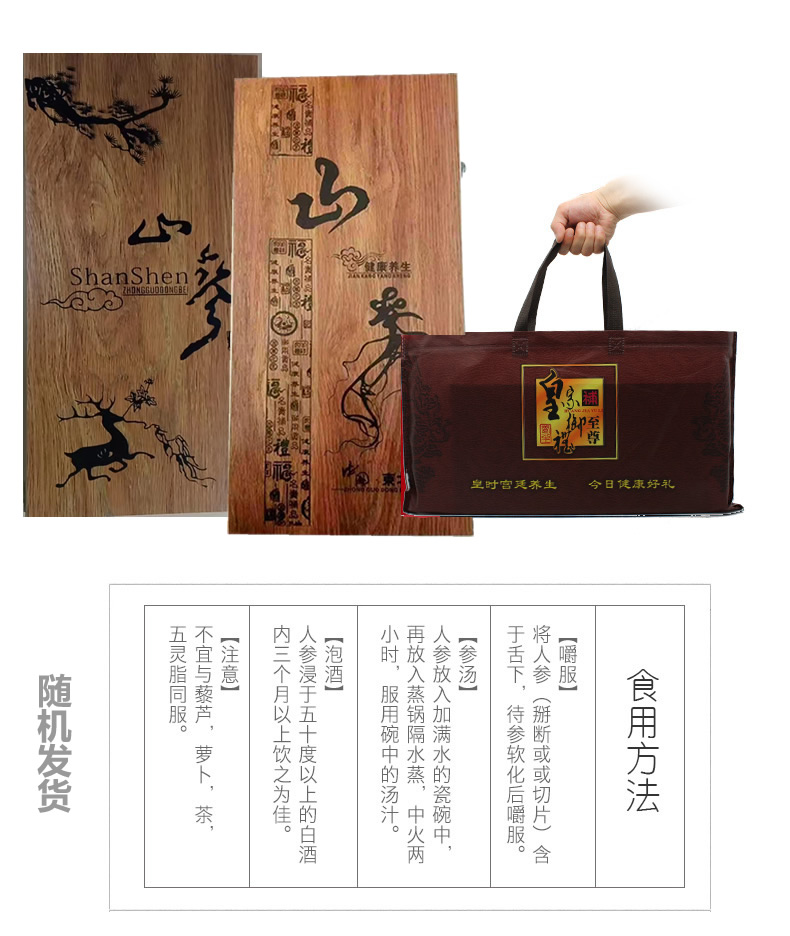 山
ShanShen
ZHONGGUODONGBEI
参
福
山
健康养生
JIAN KANG YANG SHENG
参
福
禮
福
皇家御禮
補
至尊
皇时宫廷养生
今日健康好礼
随机发货
食用方法
【嚼服】
将人参（掰断或或切片）含
于舌下，待参软化后嚼服。
【参汤】
人参放入加满水的瓷碗中，
再放入蒸锅隔水蒸，中火两
小时，服用碗中的汤汁。
【泡酒】
人参浸于五十度以上的白酒
内三个月以上饮之为佳。
【注意】
不宜与藜芦，萝卜，茶，
五灵脂同服。